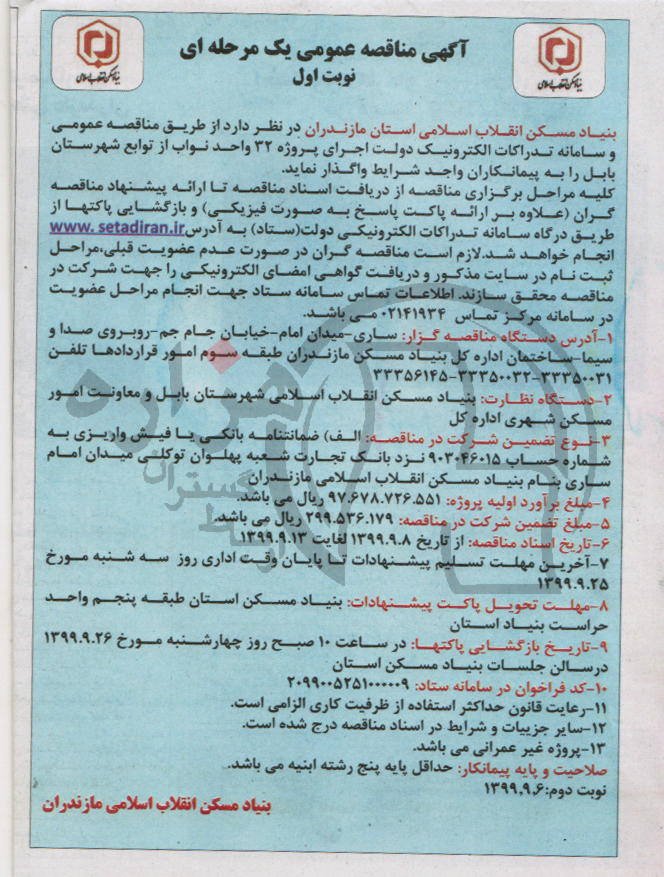 آگهی مناقصه عمومی یک مرحله ای
نوبت اول
بنیاد مسکن انقلاب اسلامی
بنیاد مسکن انقلاب اسلامی
بنیاد مسکن انقلاب اسلامی استان مازندران در نظر دارد از طریق مناقصه عمومی
و سامانه تدراکات الکترونیک دولت اجرای پروژه ۳۲ واحد نواب از توابع شهرستان
بابل را به پیمانکاران واجد شرایط واگذار نماید.
کلیه مراحل برگزاری مناقصه از دریافت اسناد مناقصه تا ارائه پیشنهاد مناقصه
گران (علاوه بر ارائه پاکت پاسخ به صورت فیزیکی) و بازگشایی پاکتها از
طریق درگاه سامانه تدراکات الکترونیکی دولت(ستاد) به آدرس www. setadiran.ir
انجام خواهد شد.لازم است مناقصه گران در صورت عدم عضویت قبلی،مراحل
ثبت نام در سایت مذکور و دریافت گواهی امضای الکترونیکی را جهت شرکت در
مناقصه محقق سازند. اطلاعات تماس سامانه ستاد جهت انجام مراحل عضویت
در سامانه مرکز تماس ۰۲۱۴۱۹۳۴ می باشد.
۱-آدرس دستگاه مناقصه گزار: ساری-میدان امام-خیابان جام جم-روبروی صدا و
سیما-ساختمان اداره کل بنیاد مسکن مازندران طبقه سوم امور قراردادها تلفن
۳۳۳۵۰۰۳۱-۳۳۳۵۰۰۳۲-۳۳۳۵۶۱۴۵
۲-دستگاه نظارت: بنیاد مسکن انقلاب اسلامی شهرستان بابل و معاونت امور
مسکن شهری اداره کل
۳-نوع تضمین شرکت در مناقصه: الف) ضمانتنامه بانکی یا فیش واریزی به
شماره حساب ۹۰۳۰۴۶۰۱۵ نزد بانک تجارت شعبه پهلوان توکلی میدان امام
ساری بنام بنیاد مسکن انقلاب اسلامی مازندران
۴-مبلغ برآورد اولیه پروژه: ۹۷.۶۷۸.۷۲۶.۵۵۱ ریال می باشد.
۵-مبلغ تضمین شرکت در مناقصه: ۲۹۹.۵۳۶.۱۷۹ ریال می باشد.
۶-تاریخ اسناد مناقصه: از تاریخ ۱۳۹۹.۹.۸ لغایت ۱۳۹۹.۹.۱۳
۷-آخرین مهلت تسلیم پیشنهادات تا پایان وقت اداری روز سه شنبه مورخ
۱۳۹۹.۹.۲۵
۸-مهلت تحویل پاکت پیشنهادات: بنیاد مسکن استان طبقه پنجم واحد
حراست بنیاد استان
۹-تاریخ بازگشایی پاکتها: در ساعت ۱۰ صبح روز چهارشنبه مورخ ۱۳۹۹.۹.۲۶
درسالن جلسات بنیاد مسکن استان
۱۰-کد فراخوان در سامانه ستاد: ۲۰۹۹۰۰۵۲۵۱۰۰۰۰۰۹
۱۱-رعایت قانون حداکثر استفاده از ظرفیت کاری الزامی است.
۱۲-سایر جزییات و شرایط در اسناد مناقصه درج شده است.
۱۳-پروژه غیر عمرانی می باشد.
صلاحیت و پایه پیمانکار: حداقل پایه پنج رشته ابنیه می باشد.
نوبت دوم:۱۳۹۹,۹,۶
بنیاد مسکن انقلاب اسلامی مازندران
هزاره